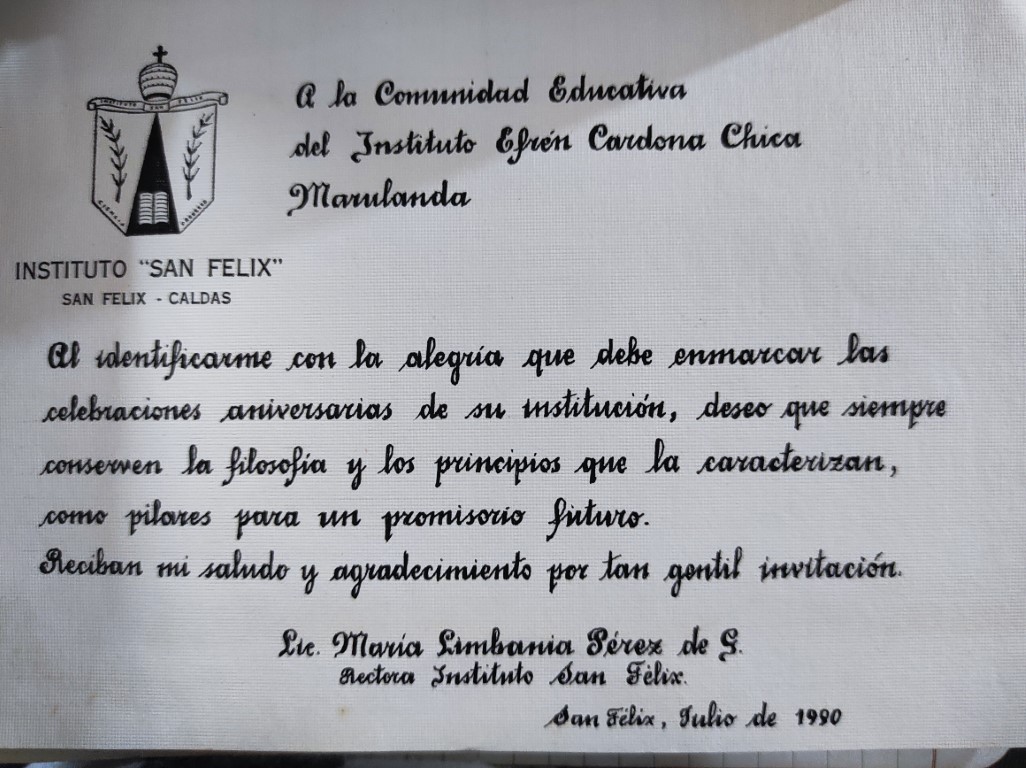 INSTITUTO SAN FELIX
CIENCIA
INSTITUTO "SAN FELIX"
SAN FELIX - CALDAS
A la Comunidad Educativa
del Instituto Efrén Cardona Chica
Marulanda
Al identificarme con la alegría que debe enmarcar las
celebraciones aniversarias de su institución, deseo que siempre
conserven la filosofía y los principios que la caracterizan,
como pilares para un promisorio futuro.
Reciban mi saludo y agradecimiento por tan gentil invitación.
Lic. María Limbania Pérez de G.
Rectora Instituto San Félix.
San Félix, Julio de 1990